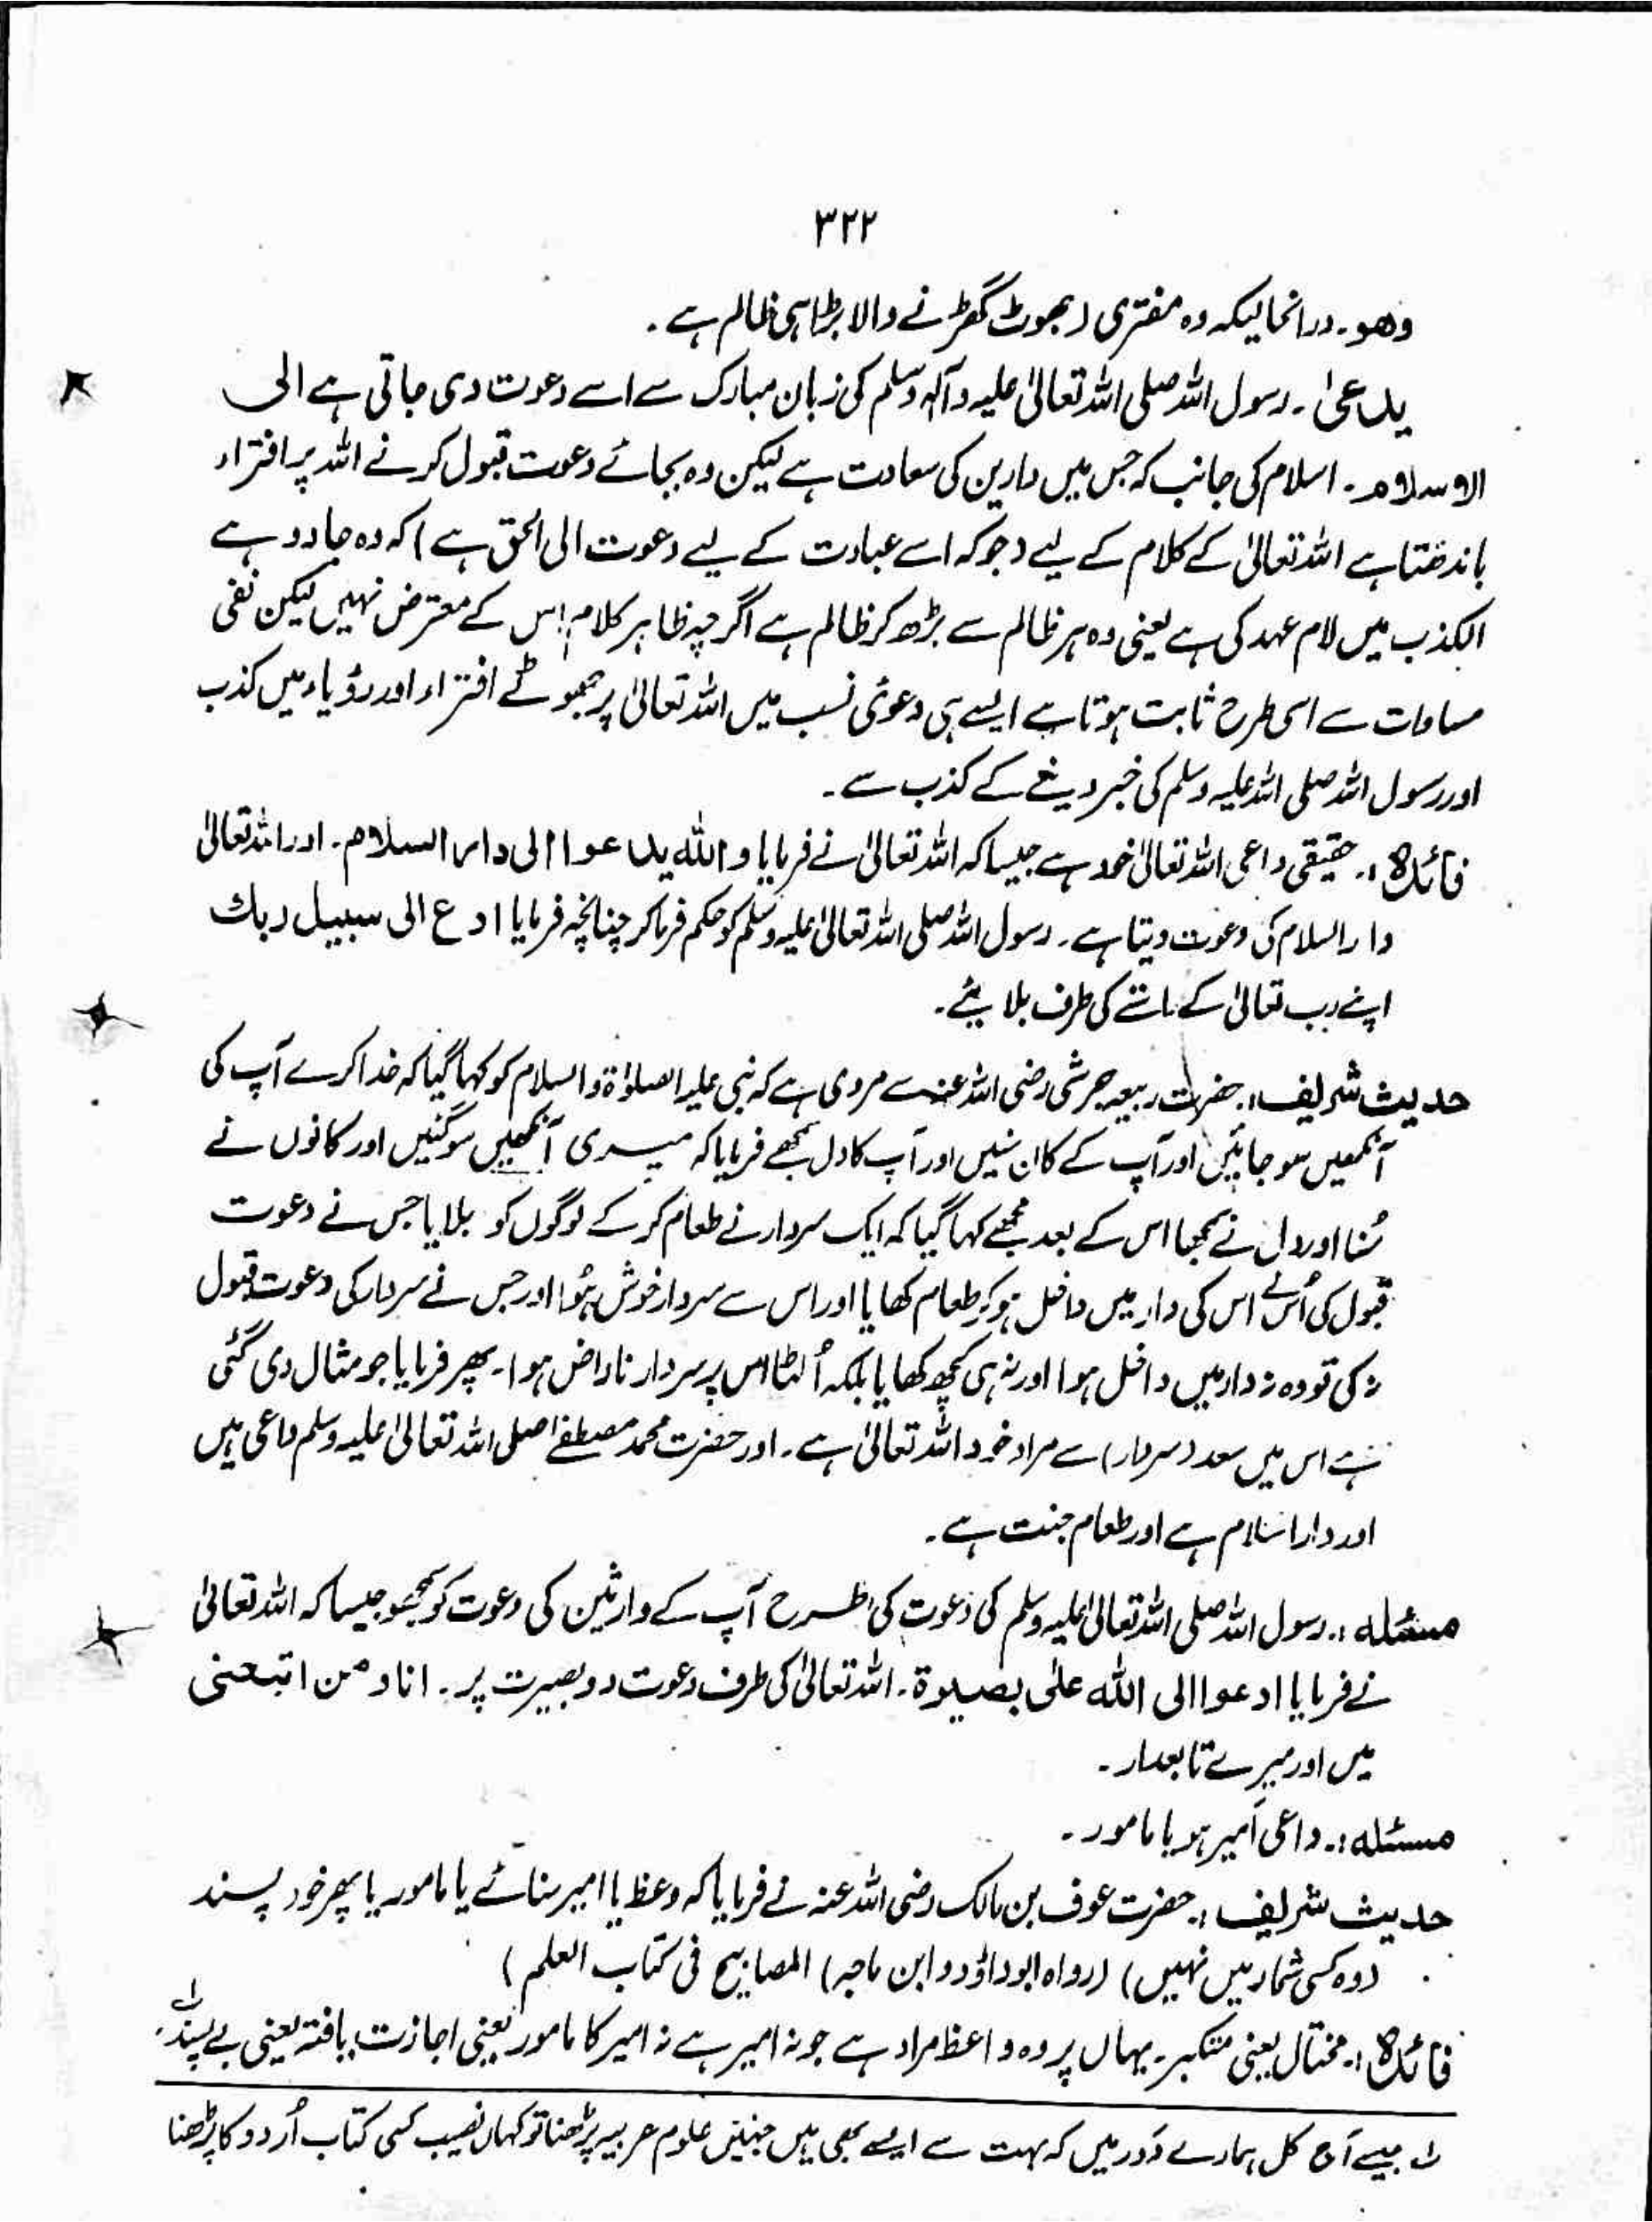 ۳۲۲
وھو۔ درانحالیکہ وہ مفتری (جھوٹ گھڑنے والا بڑا ہی ظالم ہے۔
یدعیٰ۔ رسول اللہ صلی اللہ تعالیٰ علیہ وآلہٖ وسلم کی زبان مبارک سے اسے دعوت دی جاتی ہے الی
الاسلام۔ اسلام کی جانب کہ جس میں دارین کی سعادت ہے لیکن وہ بجائے دعوت قبول کرنے اللہ پر افتراء
باندھتا ہے اللہ تعالیٰ کے کلام کے لیے (جو کہ اسے عبادت کے لیے دعوت الی الحق ہے) کہ وہ جادو ہے
الکذب میں لام عہد کی ہے یعنی وہ ہر ظالم سے بڑھ کر ظالم ہے اگرچہ ظاہر کلام اس کے معترض نہیں لیکن نفی
مساوات سے اسی طرح ثابت ہوتا ہے ایسے ہی دعویٰ نسب میں اللہ تعالیٰ پر جھوٹے افتراء اور رؤیاء میں کذب
اور رسول اللہ صلی اللہ علیہ وسلم کی خبر دینے کے کذب سے۔
فائدہ:۔ حقیقی داعی اللہ تعالیٰ خود ہے جیسا کہ اللہ تعالیٰ نے فرمایا واللہ یدعوا الی دار السلام۔ اور اللہ تعالیٰ
دارالسلام کی دعوت دیتا ہے۔ رسول اللہ صلی اللہ تعالیٰ علیہ وسلم کو حکم فرما کر چنانچہ فرمایا ادع الی سبیل ربک
اپنے رب تعالیٰ کے راستے کی طرف بلایئے۔
حدیث شریف:۔ حضرت ربیعہ جرشی رضی اللہ عنہ سے مروی ہے کہ نبی علیہ الصلوٰۃ والسلام کو کہا گیا کہ خدا کرے آپ کی
آنکھیں سو جائیں اور آپ کے کان سنیں اور آپ کا دل سمجھے فرمایا کہ میری آنکھیں سوگئیں اور کانوں نے
سُنا اور دل نے سمجھا اس کے بعد مجھے کہا گیا کہ ایک سردار نے طعام کر کے لوگوں کو بلایا جس نے دعوت
قبول کی اُس نے اس کی دار میں داخل ہو کر طعام کھایا اور اس سے سردار خوش ہُوا اور جس نے سردار کی دعوت قبول
نہ کی تو وہ نہ دار میں داخل ہوا اور نہ ہی کچھ کھایا بلکہ اُلٹا اس پر سردار ناراض ہوا۔ پھر فرمایا جو مثال دی گئی
ہے اس میں سعد (سردار) سے مراد خود اللہ تعالیٰ ہے۔ اور حضرت محمد مصطفےٰ صلی اللہ تعالیٰ علیہ وسلم داعی ہیں
اور دار اسلام ہے اور طعام جنت ہے۔
مسئلہ:۔ رسول اللہ صلی اللہ تعالیٰ علیہ وسلم کی دعوت کی طرح آپ کے وارثین کی دعوت کو سمجھو جیسا کہ اللہ تعالیٰ
نے فرمایا ادعوا الی اللہ علی بصیرۃ۔ اللہ تعالیٰ کی طرف دعوت دو بصیرت پر۔ انا و من اتبعنی
میں اور میرے تابعدار۔
مسئلہ:۔ داعی امیر ہو یا مامور۔
حدیث شریف:۔ حضرت عوف بن مالک رضی اللہ عنہ نے فرمایا کہ وعظ یا امیر سنائے یا مامور یا پھر خود پسند
(وہ کسی شمار میں نہیں) (رواہ ابوداؤد و ابن ماجہ) المصابیح فی کتاب العلم)
فائدہ:۔ مختال یعنی متکبر۔ یہاں پر وہ واعظ مراد ہے جو نہ امیر ہے نہ امیر کا مامور یعنی اجازت یافتہ یعنی بے پسند
ل جیسے آج کل ہمارے دَور میں کہ بہت سے ایسے بھی ہیں جنہیں علوم عربیہ پڑھنا تو کہاں نصیب کسی کتاب اُردو کا پڑھنا